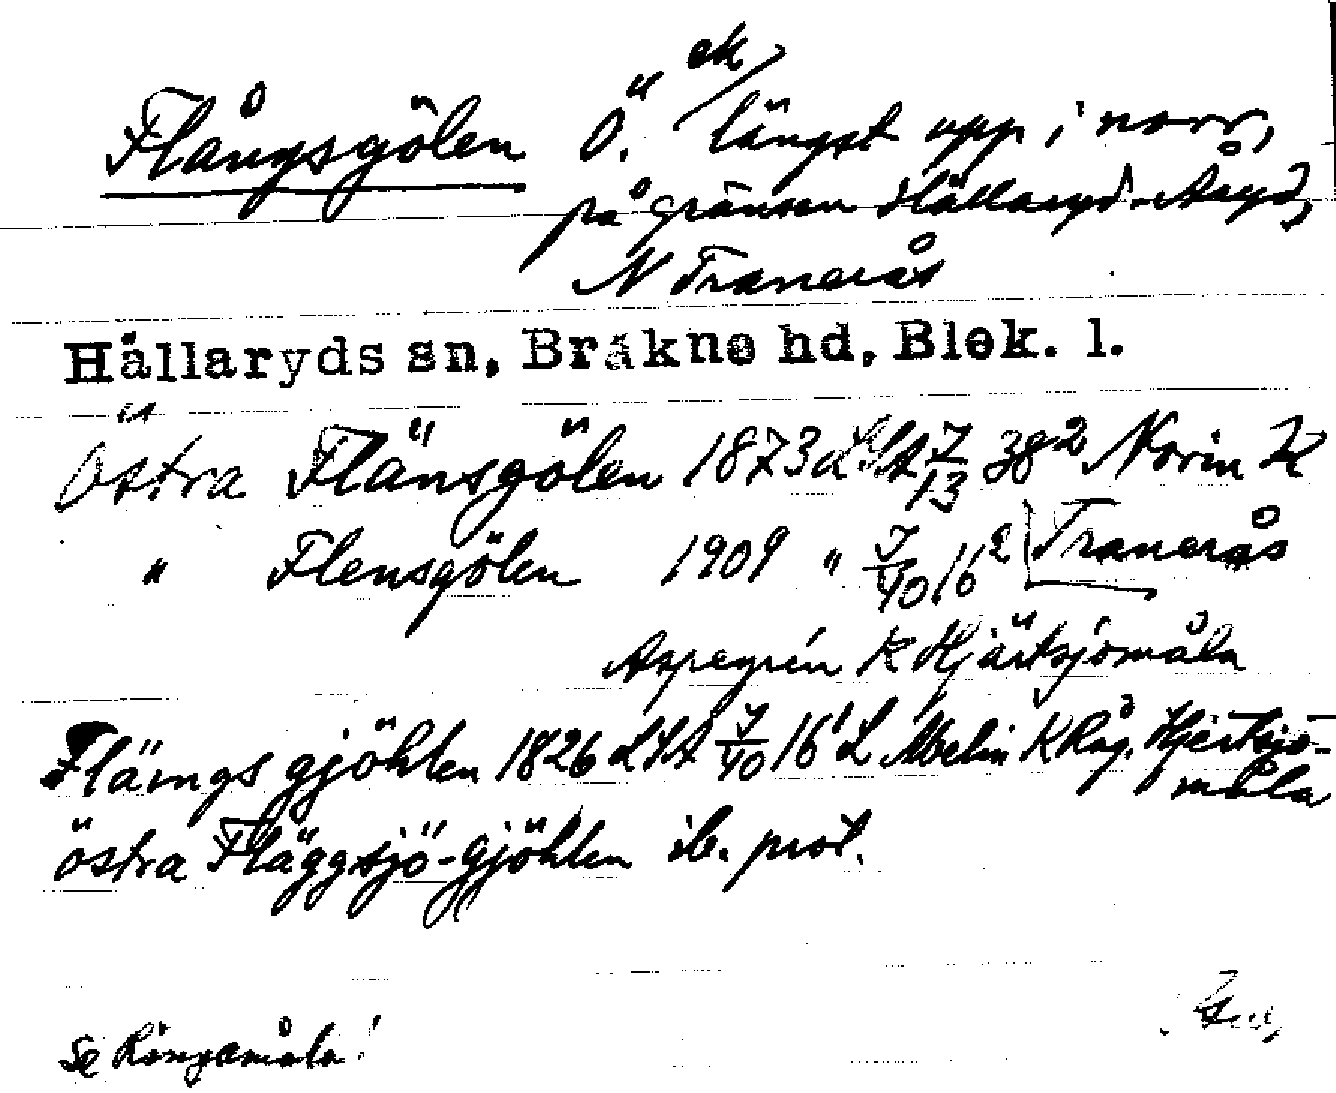 ek
Flångsgölen Ö. längst upp i norr,
på gränsen Hällaryd-Åryd,
N Tranerås
Hällaryds sn, Bräkne hd, Blek. l.
Östra Flänsgölen 1873 LSA 7/13 38² Norin K
" Flensgölen 1909 " 7/40 16² Tranerås
Aspegrén K Hjärtsjömåla
Flängs gjöhlen 1826 LSA 7/40 16¹ L Melin K Råg. Hjertsjö-
måla
östra Fläggsjö-gjöhlen ib. prot.
Se Rångamåla!